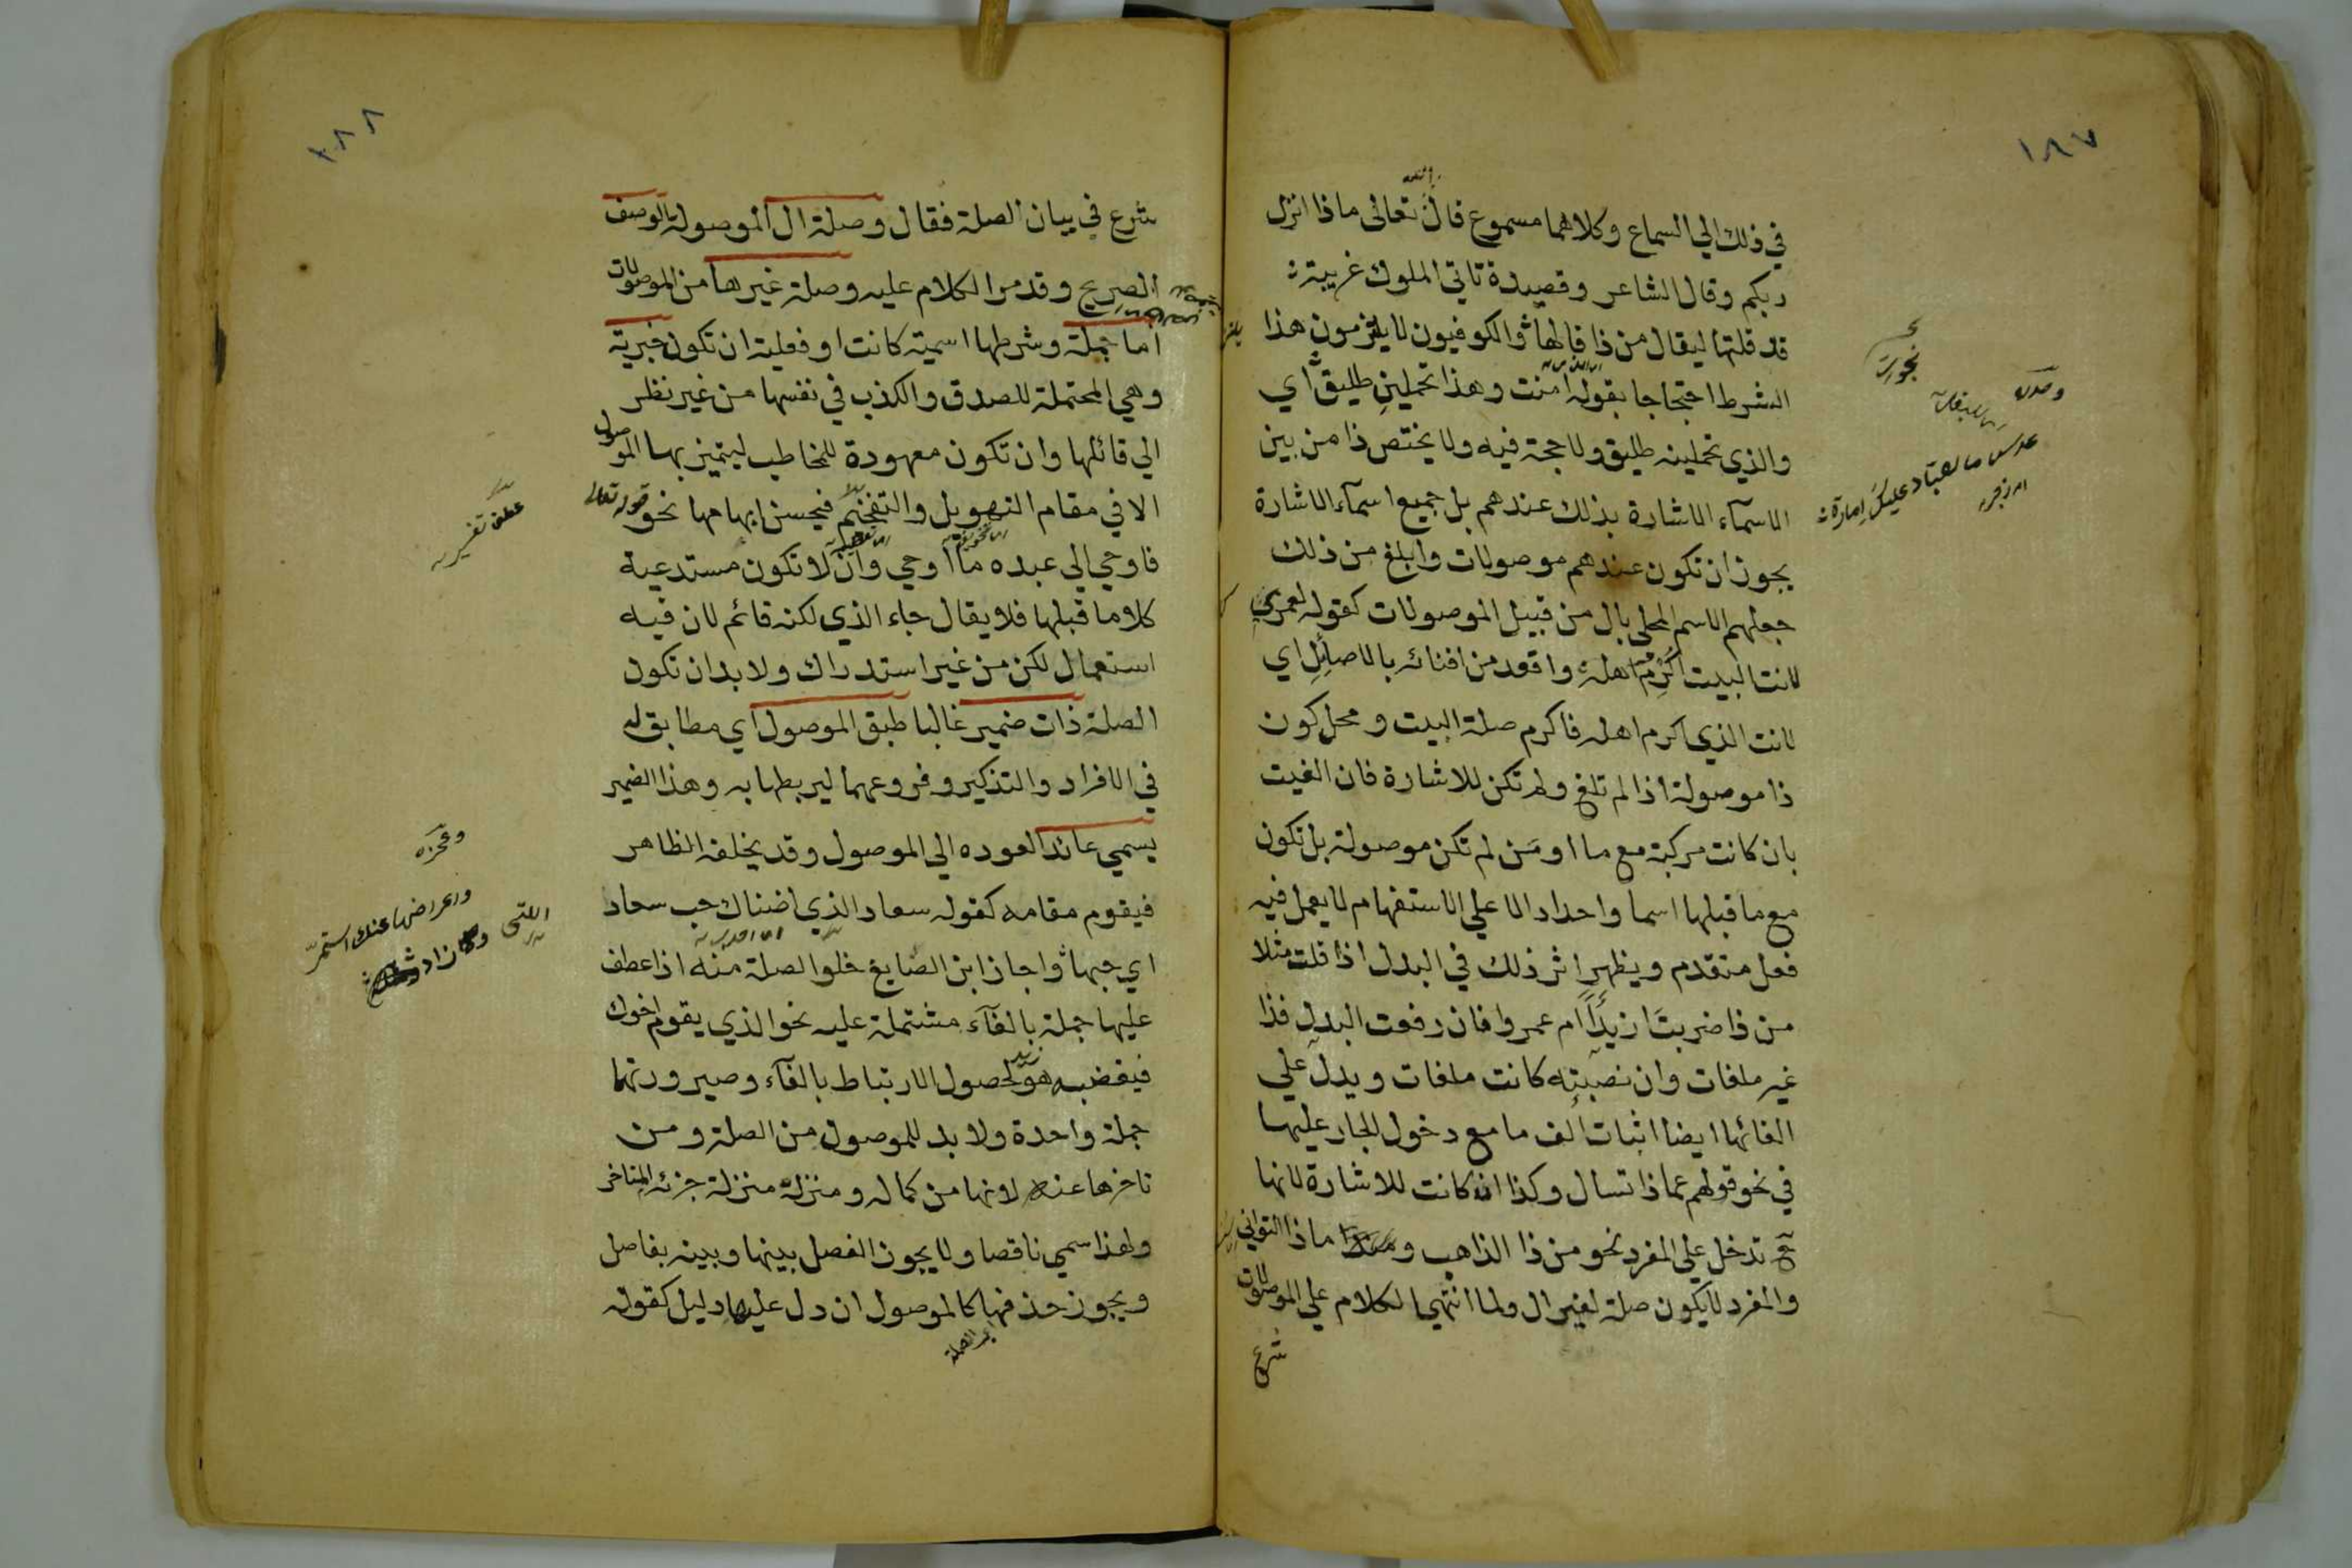 ١٨٧
في ذلك الي السماع وكلاهما مسموع قال الله تعالى ماذا انزل
ربكم وقال الشاعر وقصيدة تاتي الملوك غريبة
قد قلتها ليقال من ذا قالها والكوفيون لا يلتزمون هذا
الشرط احتجاجا بقوله امنت وهذا تحملين طليق اي
والذي تحملينه طليق ولا حجة فيه ولا يختص ذا من بين
الاسماء الاشارة بذلك عندهم بل جميع اسماء الاشارة
يجوز ان تكون عندهم موصولات وابلغ من ذلك
جعلهم الاسم المحلى بال من قبيل الموصولات كقوله لعمري
لانت البيت اكرم اهله واقعد من افنائه بالاصائل اي
لانت الذي اكرم اهله فاكرم صلة البيت ومحل كون
ذا موصولة اذا لم تلغ ولم تكن للاشارة فان الغيت
بان كانت مركبة مع ما او من لم تكن موصولة بل تكون
مع ما قبلها اسما واحدا دالا علي الاستفهام لا يعمل فيه
فعل متقدم ويظهر اثر ذلك في البدل اذا قلت مثلا
من ذا ضربت ازيدا ام عمروا فان رفعت البدل فذا
غير ملغات وان نصبته كانت ملغات ويدل علي
الغائها ايضا اثبات الف ما مع دخول الجار عليها
في نحو قولهم عماذا تسال وكذا ان كانت للاشارة لانها
ح تدخل علي المفرد نحو من ذا الذاهب و ماذا التواني
والمفرد لا يكون صلة لغير ال ولما انتهي الكلام علي الموصولات
شرع
وصدره
عدس ما لعباد عليك امارة
نجوت
٢٨٨
شرع في بيان الصلة فقال وصلة ال الموصولة الوصف
الصريح وقد مر الكلام عليه وصلة غيرها من الموصولات
اما جملة وشرطها اسمية كانت او فعلية ان تكون خبرية
وهي المحتملة للصدق والكذب في نفسها من غير نظر
الي قائلها وان تكون معهودة للمخاطب ليتميز بها الموصول
الا في مقام التهويل والتفخيم فيحسن ابهامها نحو قوله تعالى
فاوحي الي عبده ما اوحي وان لا تكون مستدعية
كلاما قبلها فلا يقال جاء الذي لكنه قائم لان فيه
استعمال لكن من غير استدراك ولا بد ان تكون
الصلة ذات ضمير غالبا طبق الموصول اي مطابق له
في الافراد والتذكير وفروعهما ليربطها به وهذا الضمير
يسمي عائدا لعوده الي الموصول وقد يخلفه الظاهر
فيقوم مقامه كقوله سعاد الذي اضناك حب سعاد
اي حبها واجاز ابن الصايغ خلوا الصلة منه اذا عطف
عليها جملة بالفاء مشتملة عليه نحو الذي يقوم اخوك
فيغضب هو زيد لحصول الارتباط بالفاء وصيرورتهما
جملة واحدة ولا بد للموصول من الصلة ومن
تاخرها عنه لانها من كماله ومنزلة منزلة جزئه المتاخر
ولهذا سمي ناقصا ولا يجوز الفصل بينها وبينه بفاصل
ويجوز حذفها كالموصول ان دل عليها دليل كقوله
اي الصلة
عطف تفسير
وعجزه
واعراضها عنك استمر
وزاد